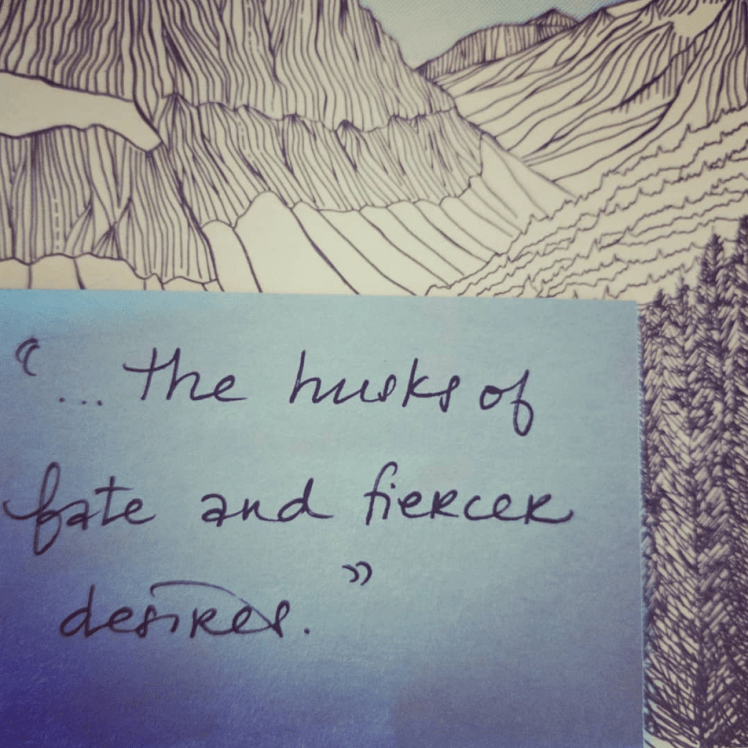 "... the husks of
fate and fiercer
desires."